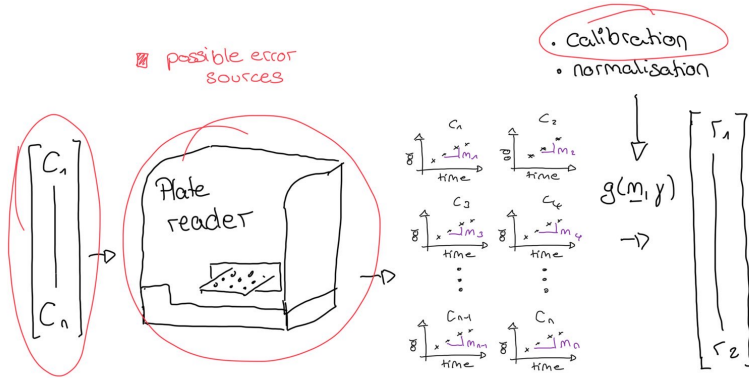 possible error
sources
· calibration
· normalisation
C₁
Cₙ
Plate
reader
C₁
OD
m₁
time
C₂
OD
m₂
time
C₃
OD
m₃
time
C₄
OD
m₄
time
Cₙ₋₁
OD
mₙ₋₁
time
Cₙ
OD
mₙ
time
g(m, γ)
r₁
r₂